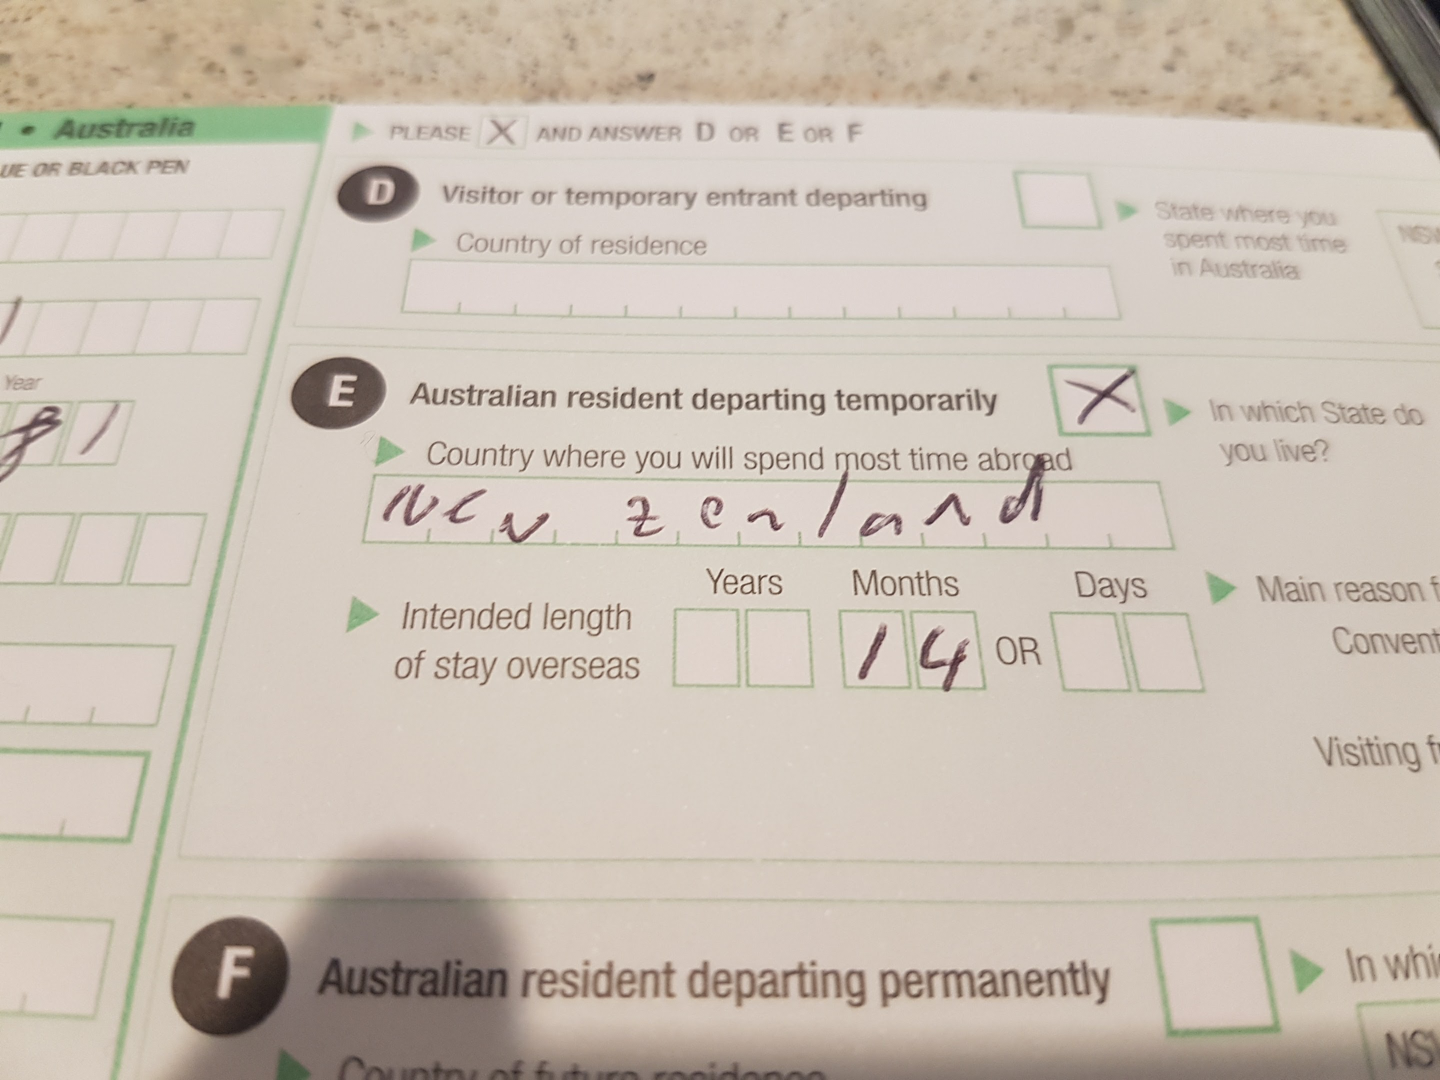 • Australia
UE OR BLACK PEN
Year
81
PLEASE X AND ANSWER D OR E OR F
D Visitor or temporary entrant departing
Country of residence
State where you
spent most time
in Australia
NSW
E Australian resident departing temporarily X
Country where you will spend most time abroad
New Zealand
In which State do
you live?
Intended length
of stay overseas
Years Months Days
14 OR
Main reason f
Convent
Visiting fr
F Australian resident departing permanently
In whi
NSW
Country of future residence